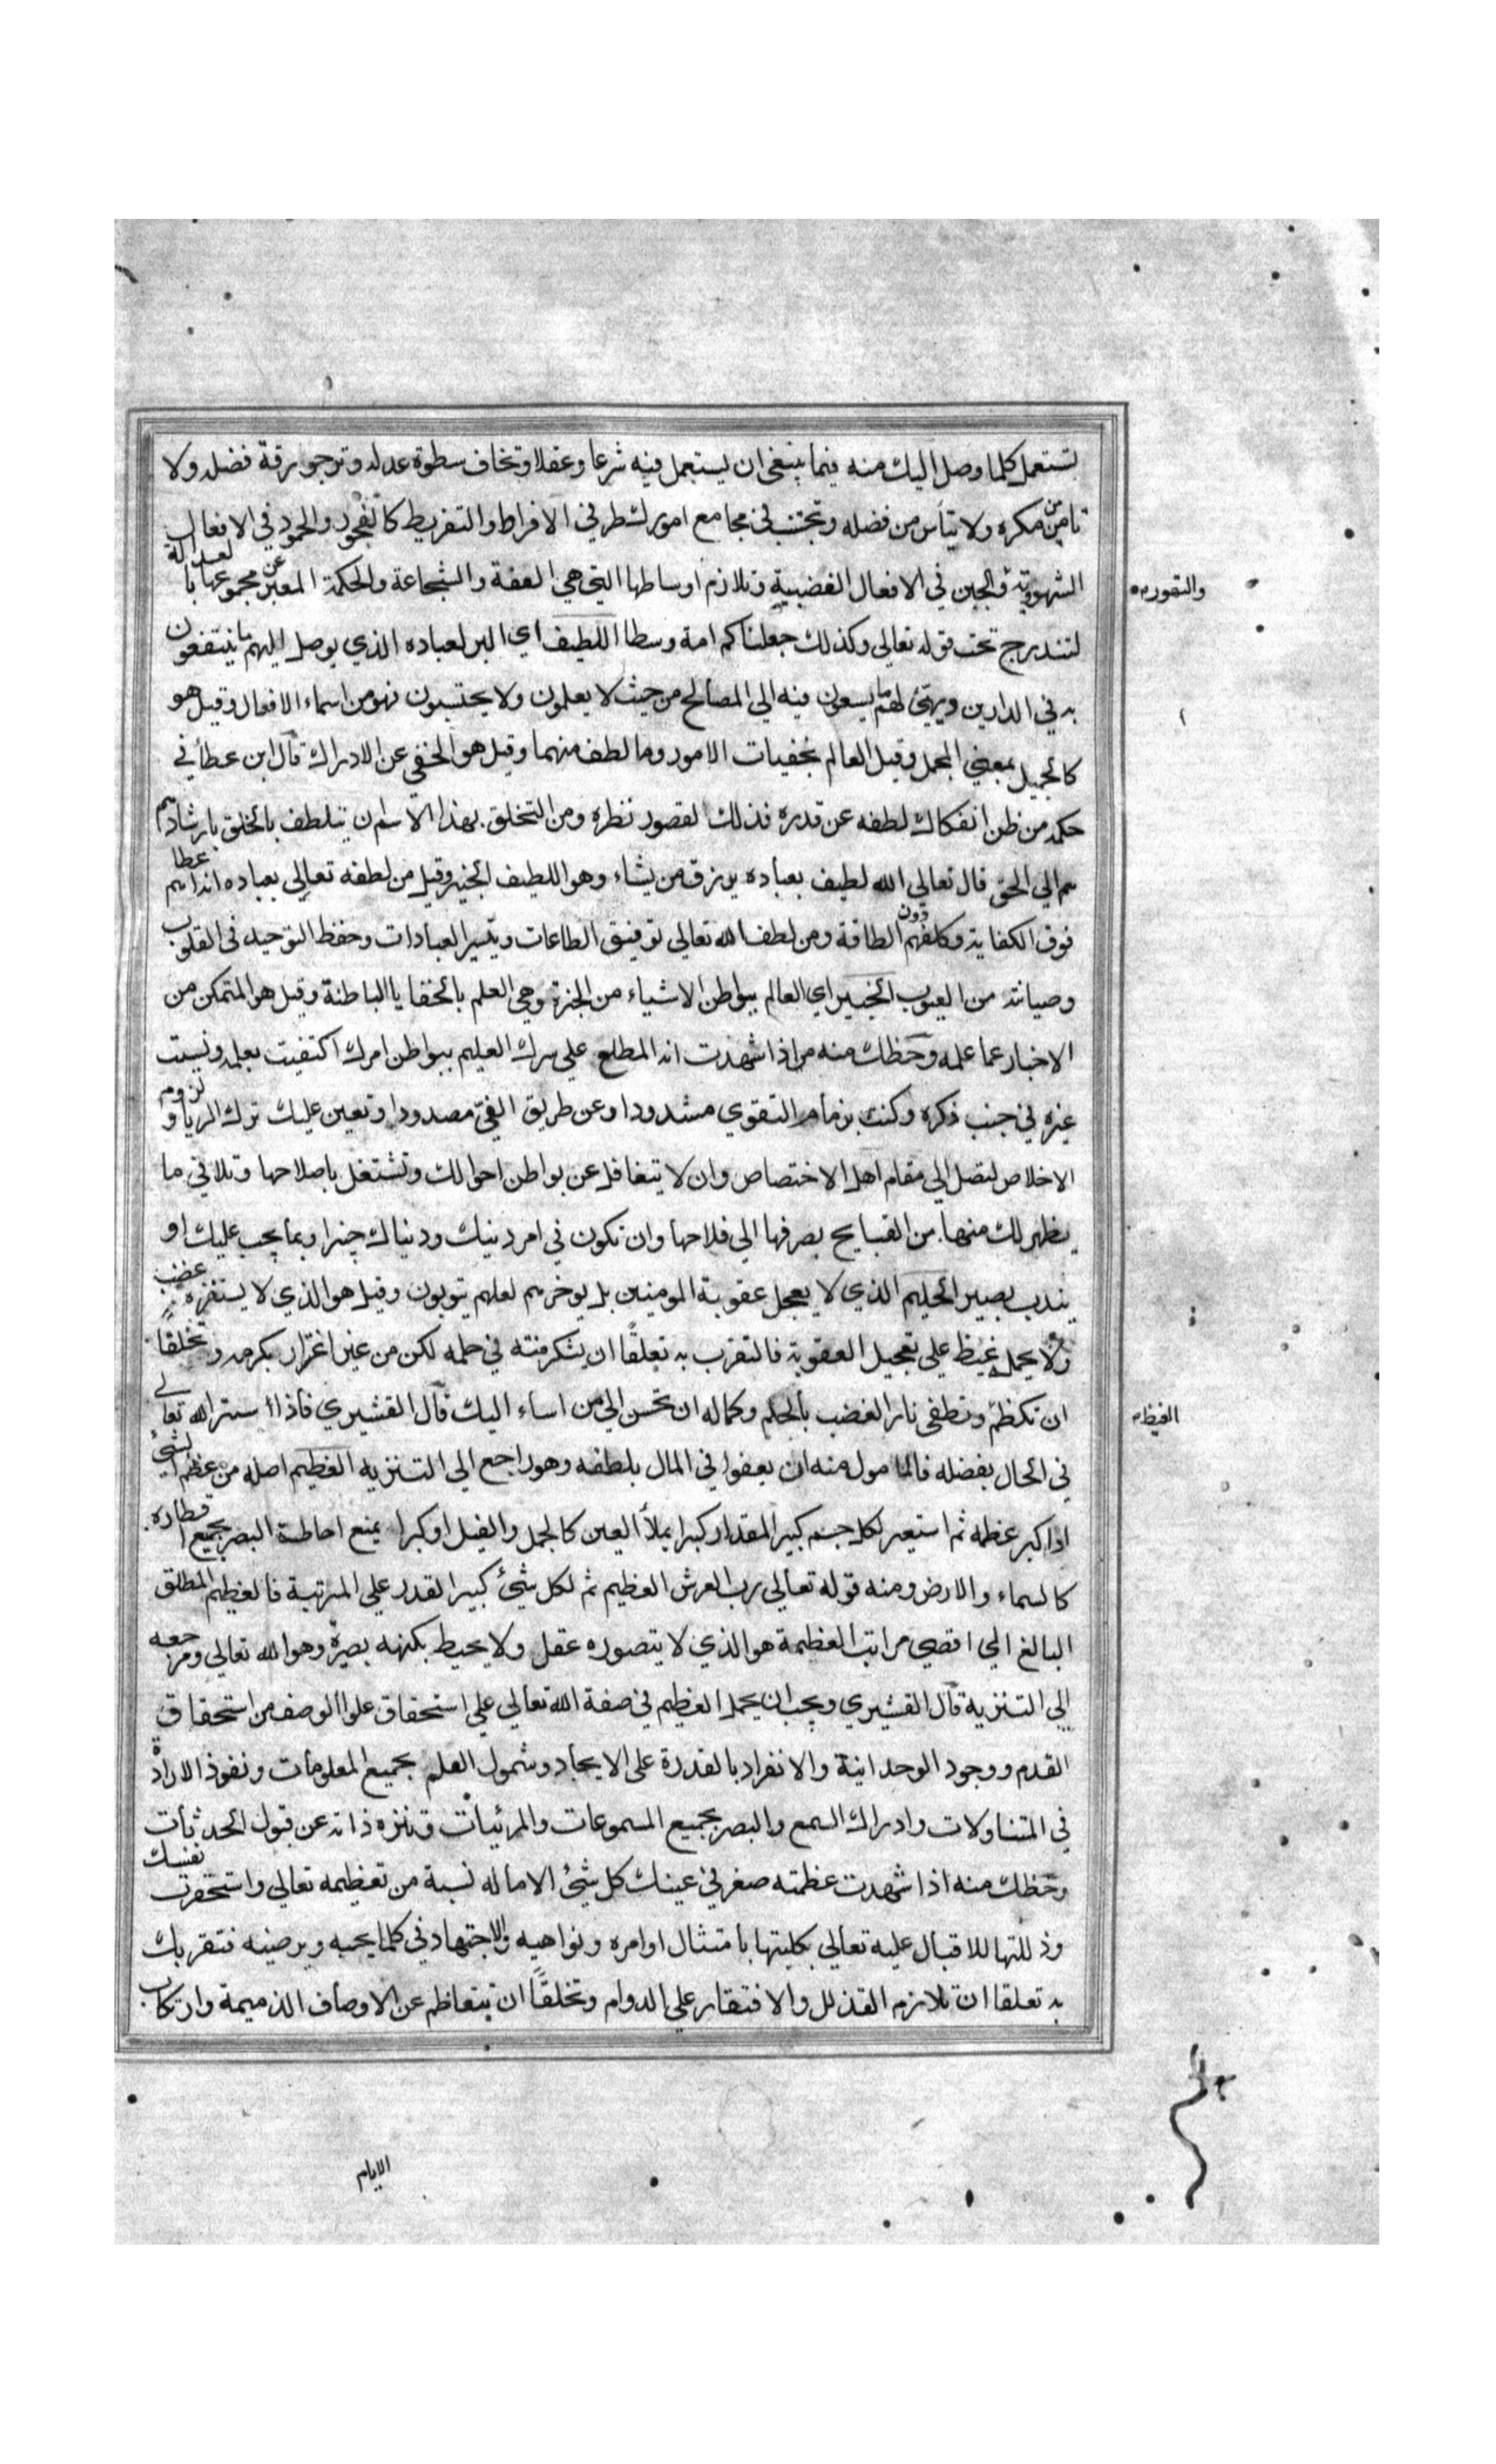 تستعمل كلما وصل اليك منه فيما ينبغي ان يستعمل فيه شرعا وعقلا وتخاف سطوة عدله وترجو رقة فضله ولا
تامن من مكره ولا تيأس من فضله وتجتنب في مجامع امورك طرفي الافراط والتفريط كالفجور والخمود في الافعال
الشهوية والجبن في الافعال الغضبية وتلازم اوساطها التي هي العفة والشجاعة والحكمة المعبر عن مجموعها بالعدالة
والتهوره
لتندرج تحت قوله تعالى وكذلك جعلناكم امة وسطا اللطيف اي البر لعباده الذي يوصل اليهم ما ينتفعون
به في الدارين ويهيئ لهم ما يسعون فيه الى المصالح من حيث لا يعلمون ولا يحتسبون فهو من اسماء الافعال وقيل هو
كالجميل بمعنى المجمل وقيل العالم بخفيات الامور وما لطف منهما وقيل هو الخفي عن الادراك قال ابن عطاء في
حكمه من ظن انفكاك لطفه عن قدره فذلك لقصور نظره ومن التخلق بهذا الاسم ان يتلطف بالخلق بارشادهم
هم الى الحق قال تعالى الله لطيف بعباده يرزق من يشاء وهو اللطيف الخبير وقيل من لطفه تعالى بعباده انه اعطاهم
فوق الكفاية وكلفهم دون الطاقة ومن لطف الله تعالى توفيق الطاعات وتيسير العبادات وحفظ التوحيد في القلوب
وصيانته من العيوب الخبير اي العالم ببواطن الاشياء من الخبرة وهي العلم بالخفايا الباطنة وقيل هو المتمكن من
الاخبار عما علمه وحظك منه من اذا شهدت انه المطلع على سرك العليم ببواطن امرك اكتفيت بعلمه ونسيت
غيره في جنب ذكره وكنت بزمام التقوى مشدودا وعن طريق الغي مصدودا وتعين عليك ترك الريا ولزوم
الاخلاص لتصل الى مقام اهل الاختصاص وان لا تتغافل عن بواطن احوالك وتشتغل باصلاحها وتلافي ما
يظهر لك منها من القبايح بصرفها الى فلاحها وان تكون في امر دينك ودنياك خبيرا وبما يجب عليك او
يندب بصير الحليم الذي لا يعجل عقوبة المومنين بل يوخرهم لعلهم يتوبون وقيل هو الذي لا يستفزه غضب
ولا يحمله غيظ على تعجيل العقوبة فالتقرب به تعلقًا ان يشكر منته في حلمه لكن من غير اغترار بكرمه وتخلقًا
ان تكظم وتطفي نار الغضب بالحلم وكماله ان تحسن الى من اساء اليك قال القشيري فاذا ستر الله تعالى
الغيظ م
في الحال بفضله فالمامول منه ان يعفوا في المال بلطفه وهو راجع الى التنزيه العظيم اصله من عظم الشئ
اذا كبر عظمه ثم استعير لكل جسم كبير المقدار كبرا يملأ العين كالجمل والفيل او كبرا يمنع احاطة البصر بجميع اقطاره
كالسماء والارض ومنه قوله تعالى رب العرش العظيم ثم لكل شئ كبير القدر على المرتبة فالعظيم المطلق
البالغ الى اقصى مراتب العظمة هو الذي لا يتصوره عقل ولا يحيط بكنهه بصيرة وهو الله تعالى ومرجعه
الى التنزيه قال القشيري ويجب ان يحمل العظيم في صفة الله تعالى على استحقاق علو الوصف من استحقاق
القدم ووجود الوحدانية والانفراد بالقدرة على الايجاد وشمول العلم بجميع المعلومات ونفوذ الارادة
في المتناولات وادراك السمع والبصر بجميع المسموعات والمرئيات وتنزه ذاته عن قبول الحدثات
وحظك منه اذا شهدت عظمته صغر في عينك كل شئ الا ما له نسبة من تعظيمه تعالى واستحقرت نفسك
وذللتها للاقبال عليه تعالى بكليتها بامتثال اوامره ونواهيه والاجتهاد في كلما يحبه ويرضيه فتقربك
به تعلقا ان تلازم التذلل والافتقار على الدوام وتخلقًا ان تتعاظم عن الاوصاف الذميمة وارتكاب
الايام